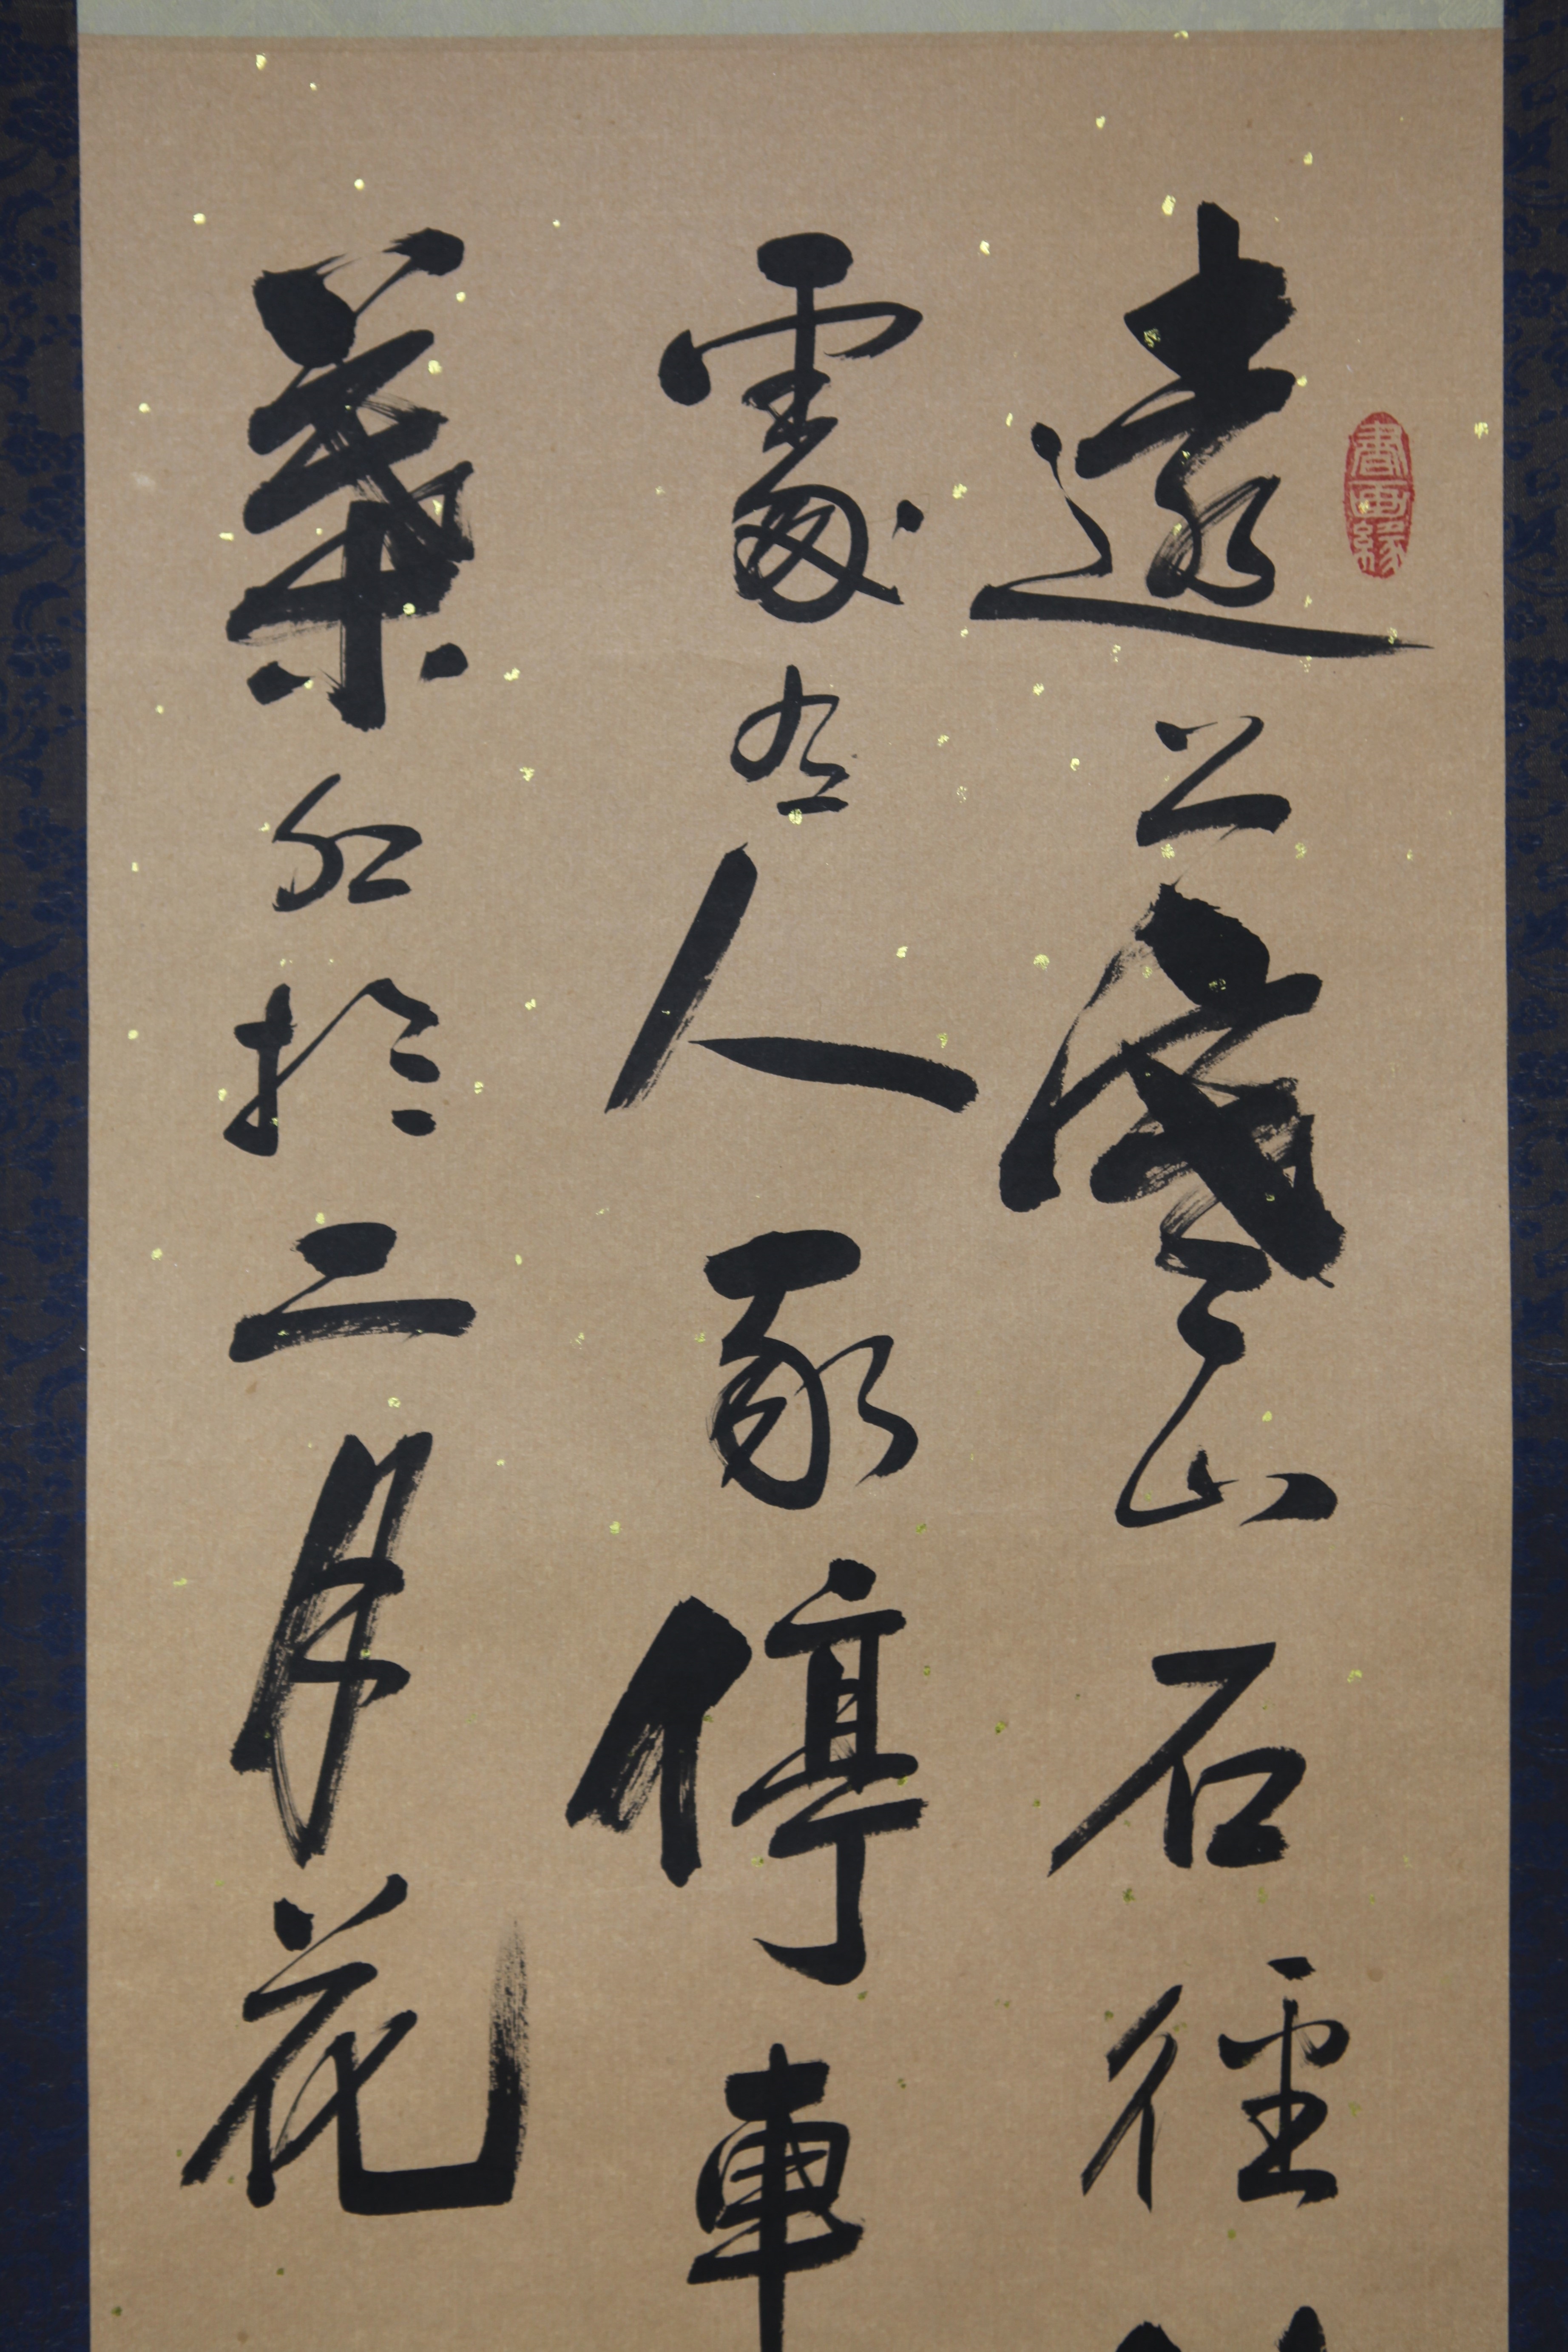 書画緣
遠上寒山石徑
處有人家停車
葉紅於二月花